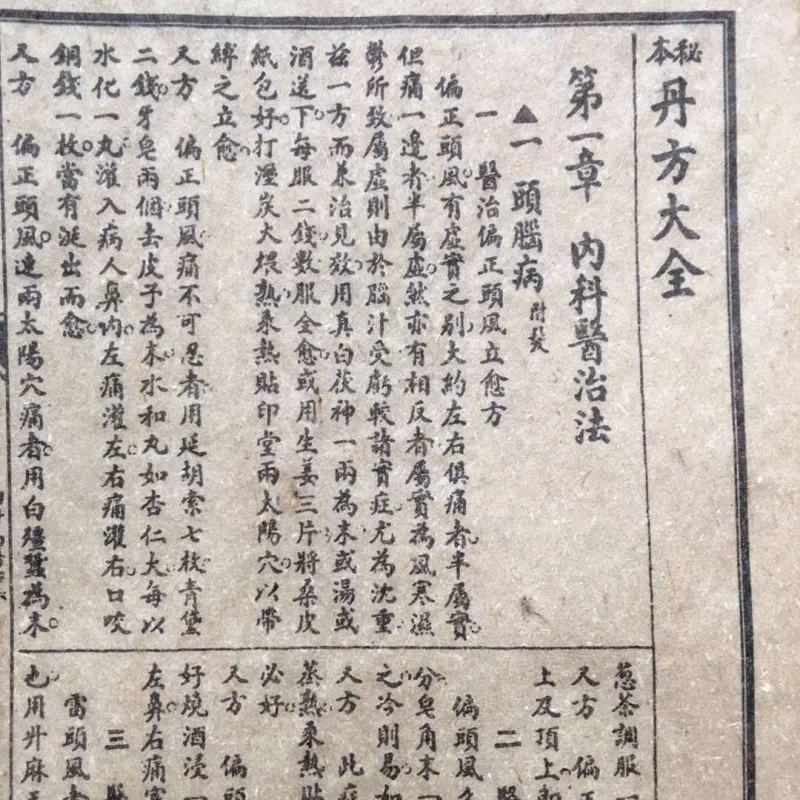 秘本
丹方大全
第一章　內科醫治法
▲一　頭腦病　附髮
一　醫治偏正頭風立愈方
偏正頭風有虛實之別。大約左右俱痛者。半屬實。
但痛一邊者。半屬虛。然亦有相反者。屬實為風寒濕
鬱所致。屬虛則由於腦汁受虧。較諸實症。尤為沈重。
茲一方而兼治見效。用真白茯神一兩為末。或湯或
酒送下。每服二錢。數服全愈。或用生姜三片。將桑皮
紙包好。打溼炭火煨熱。乘熱貼印堂兩太陽穴。以帶
縛之立愈。
又方　偏正頭風痛不可忍者。用延胡索七枚。青黛
二錢。牙皂兩個。去皮子為末。水和丸如杏仁大。每以
水化一丸。灌入病人鼻內。左痛灌左。右痛灌右。口咬
銅錢一枚。當有涎出而愈。
又方　偏正頭風。連兩太陽穴痛者。用白殭蠶為末。
葱茶調服一
又方　偏正
上及頂上
二　醫
偏頭風
分皂角末一
之冷則易
又方　此
蒸熱乘熱貼
必好。
又方　偏頭
好燒酒浸一
左鼻。右痛
三　醫
雷頭風
也。用升麻